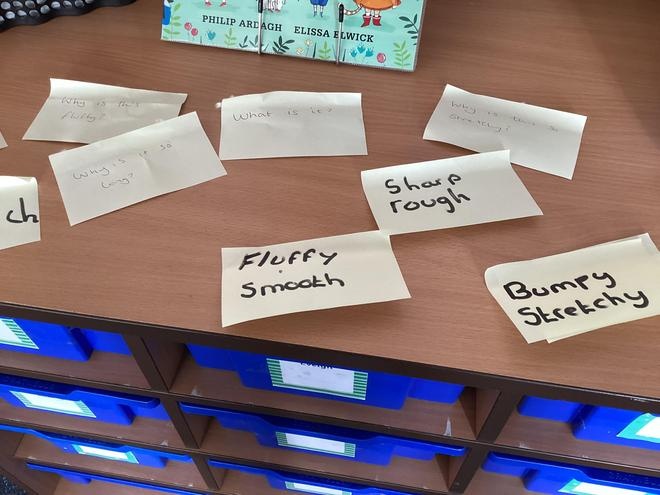 PHILIP ARDAGH ELISSA ELWICK
Why is this
fluffy?
What is it?
Why is this so
stretchy?
Why is it so
long?
ch
Sharp
rough
Fluffy
Smooth
Bumpy
Stretchy